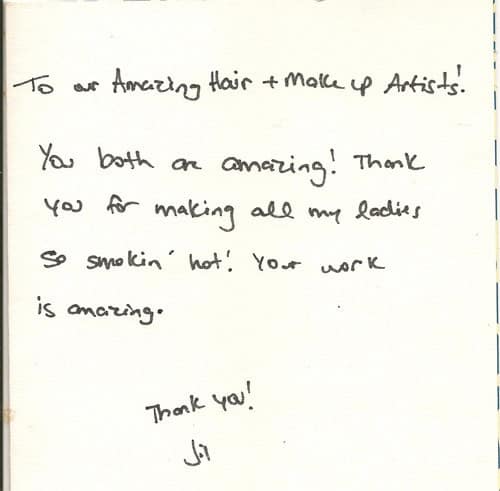 To our Amazing Hair + Make up Artists!
You both are amazing! Thank
you for making all my ladies
so smokin' hot! Your work
is amazing.
Thank you!
Jil